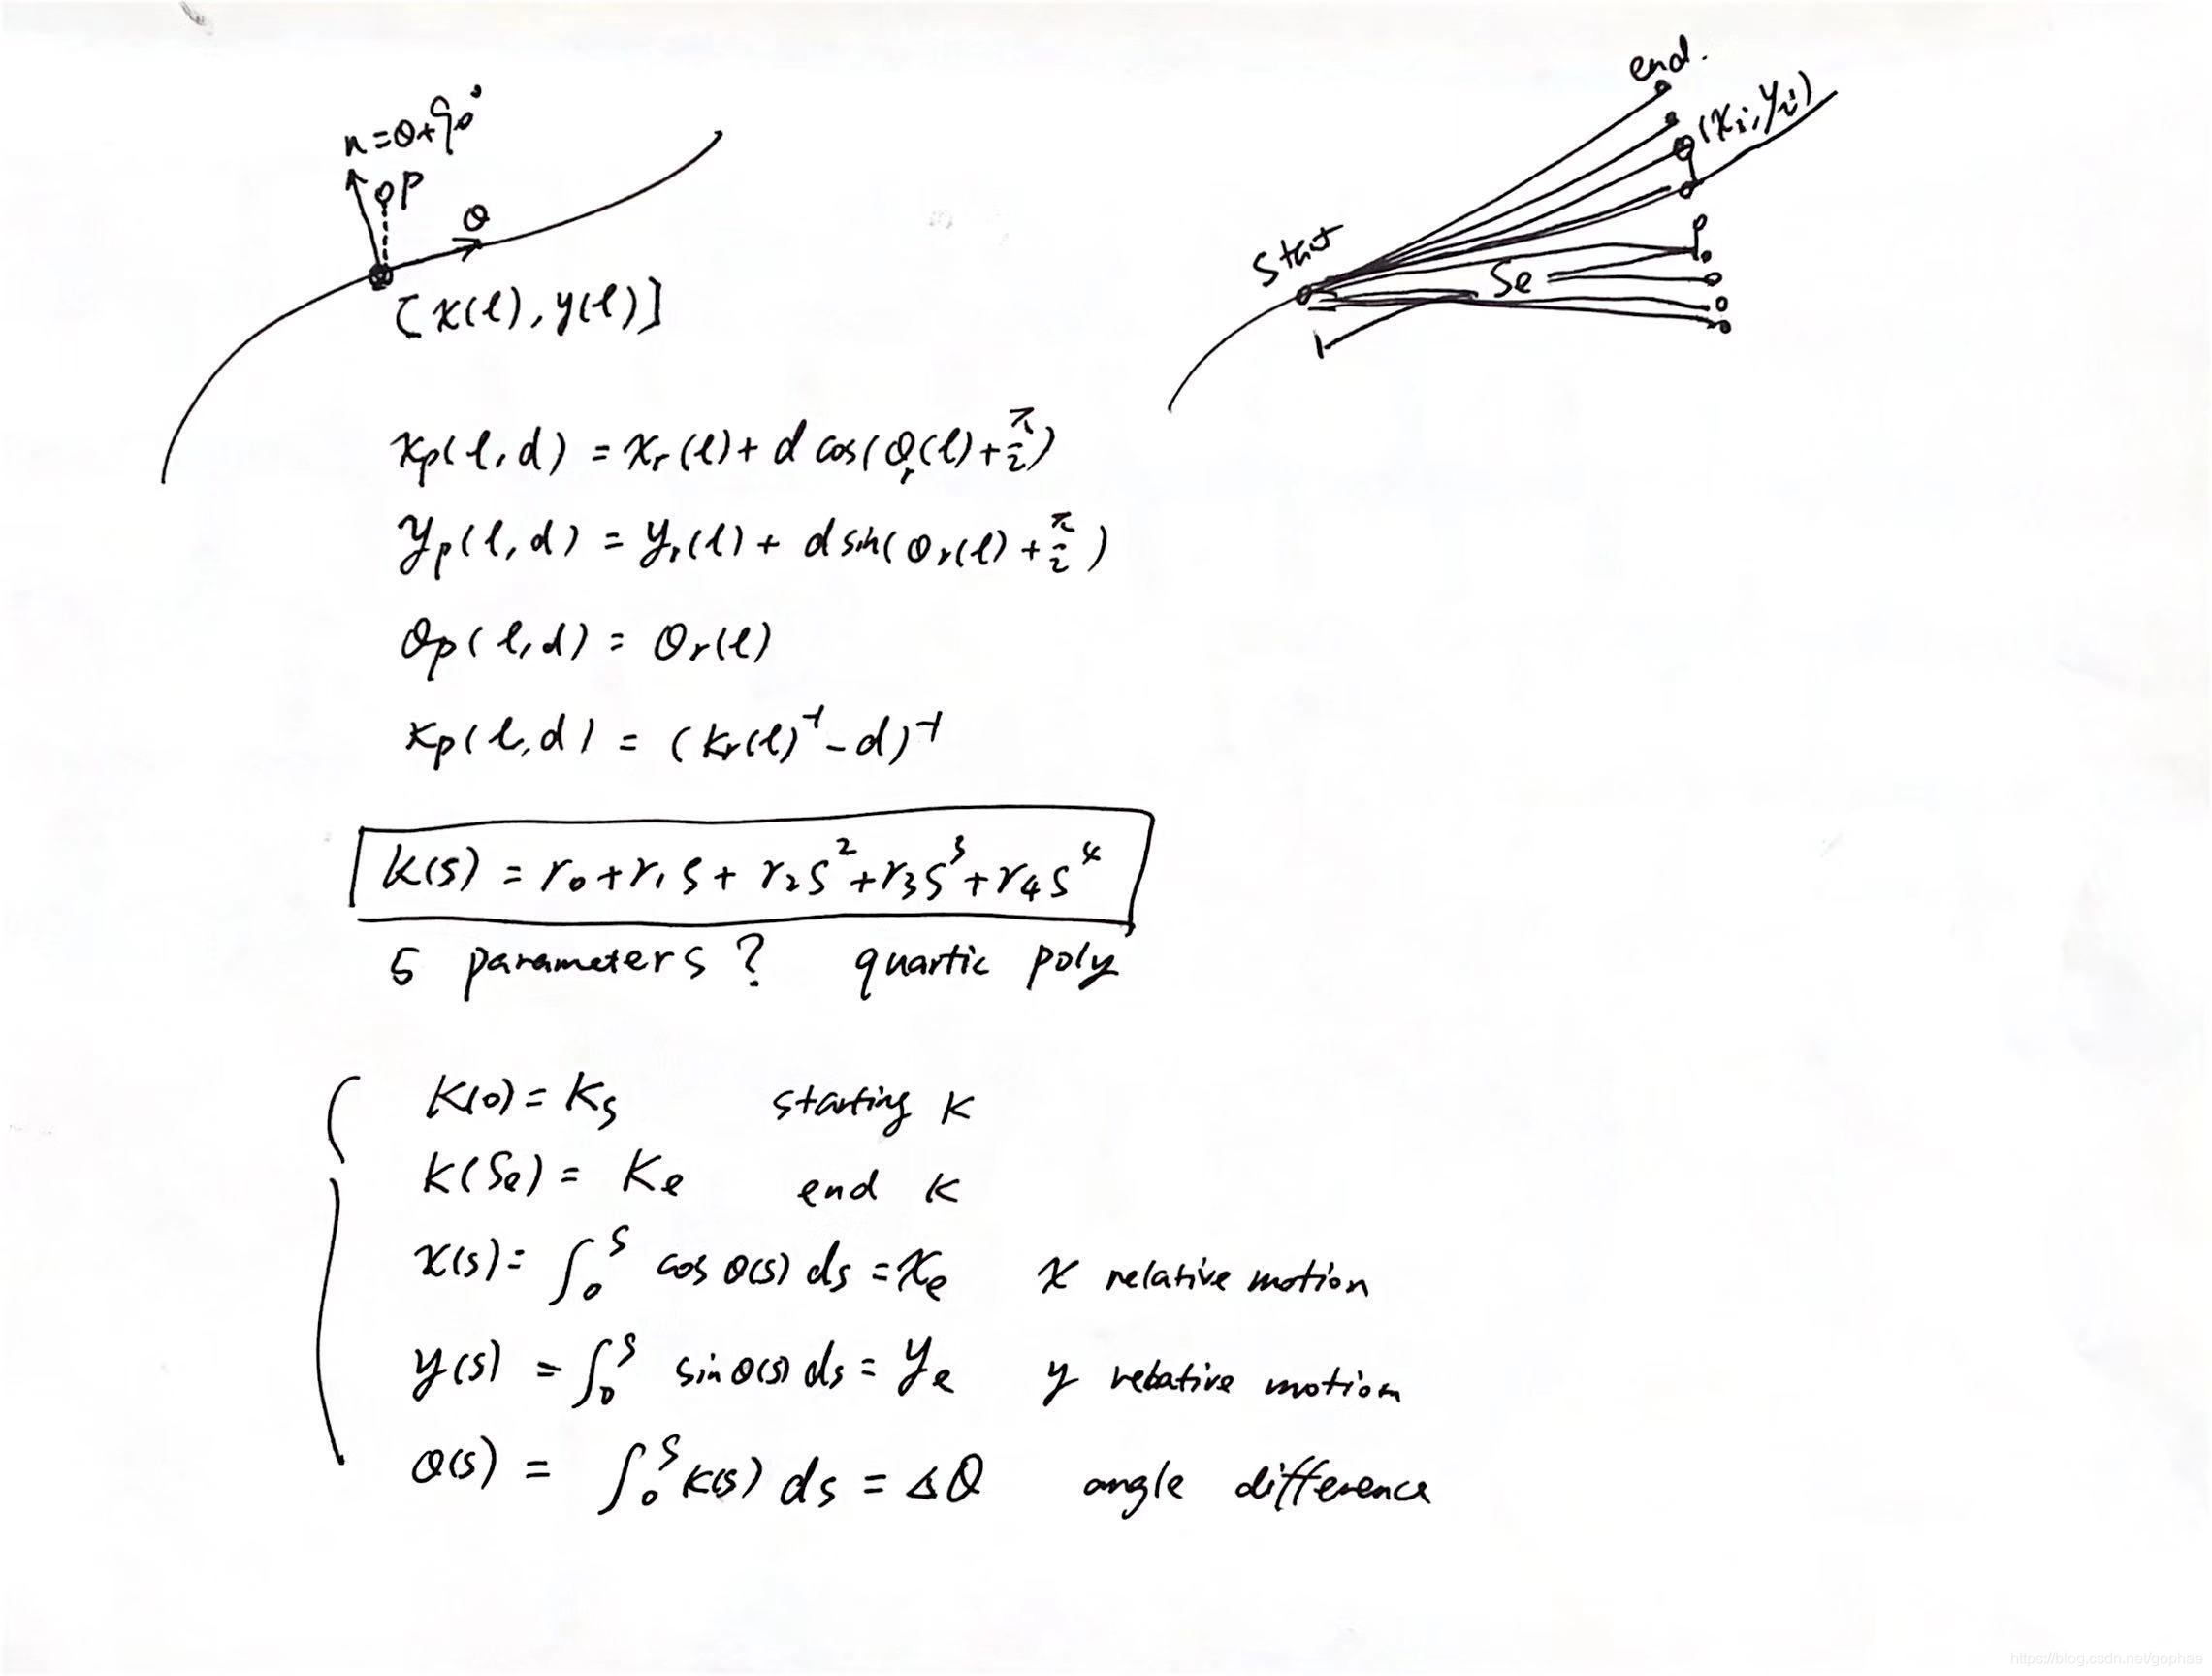 n=θ+90°
P
θ
[x(l), y(l)]
end.
(xi, yi)
start
Se
xp(l, d) = xr(l) + d cos(θr(l) + π/2)
yp(l, d) = yr(l) + d sin(θr(l) + π/2)
θp(l, d) = θr(l)
κp(l, d) = (kr(l)⁻¹ - d)⁻¹
k(s) = r0 + r1 s + r2 s² + r3 s³ + r4 s⁴
5 parameters ? quartic poly
K(0) = Ks starting K
k(Se) = Ke end K
x(s) = ∫₀ˢ cos θ(s) ds = xe x relative motion
y(s) = ∫₀ˢ sin θ(s) ds = ye y relative motion
θ(s) = ∫₀ˢ k(s) ds = Δθ angle difference
https://blog.csdn.net/gophae